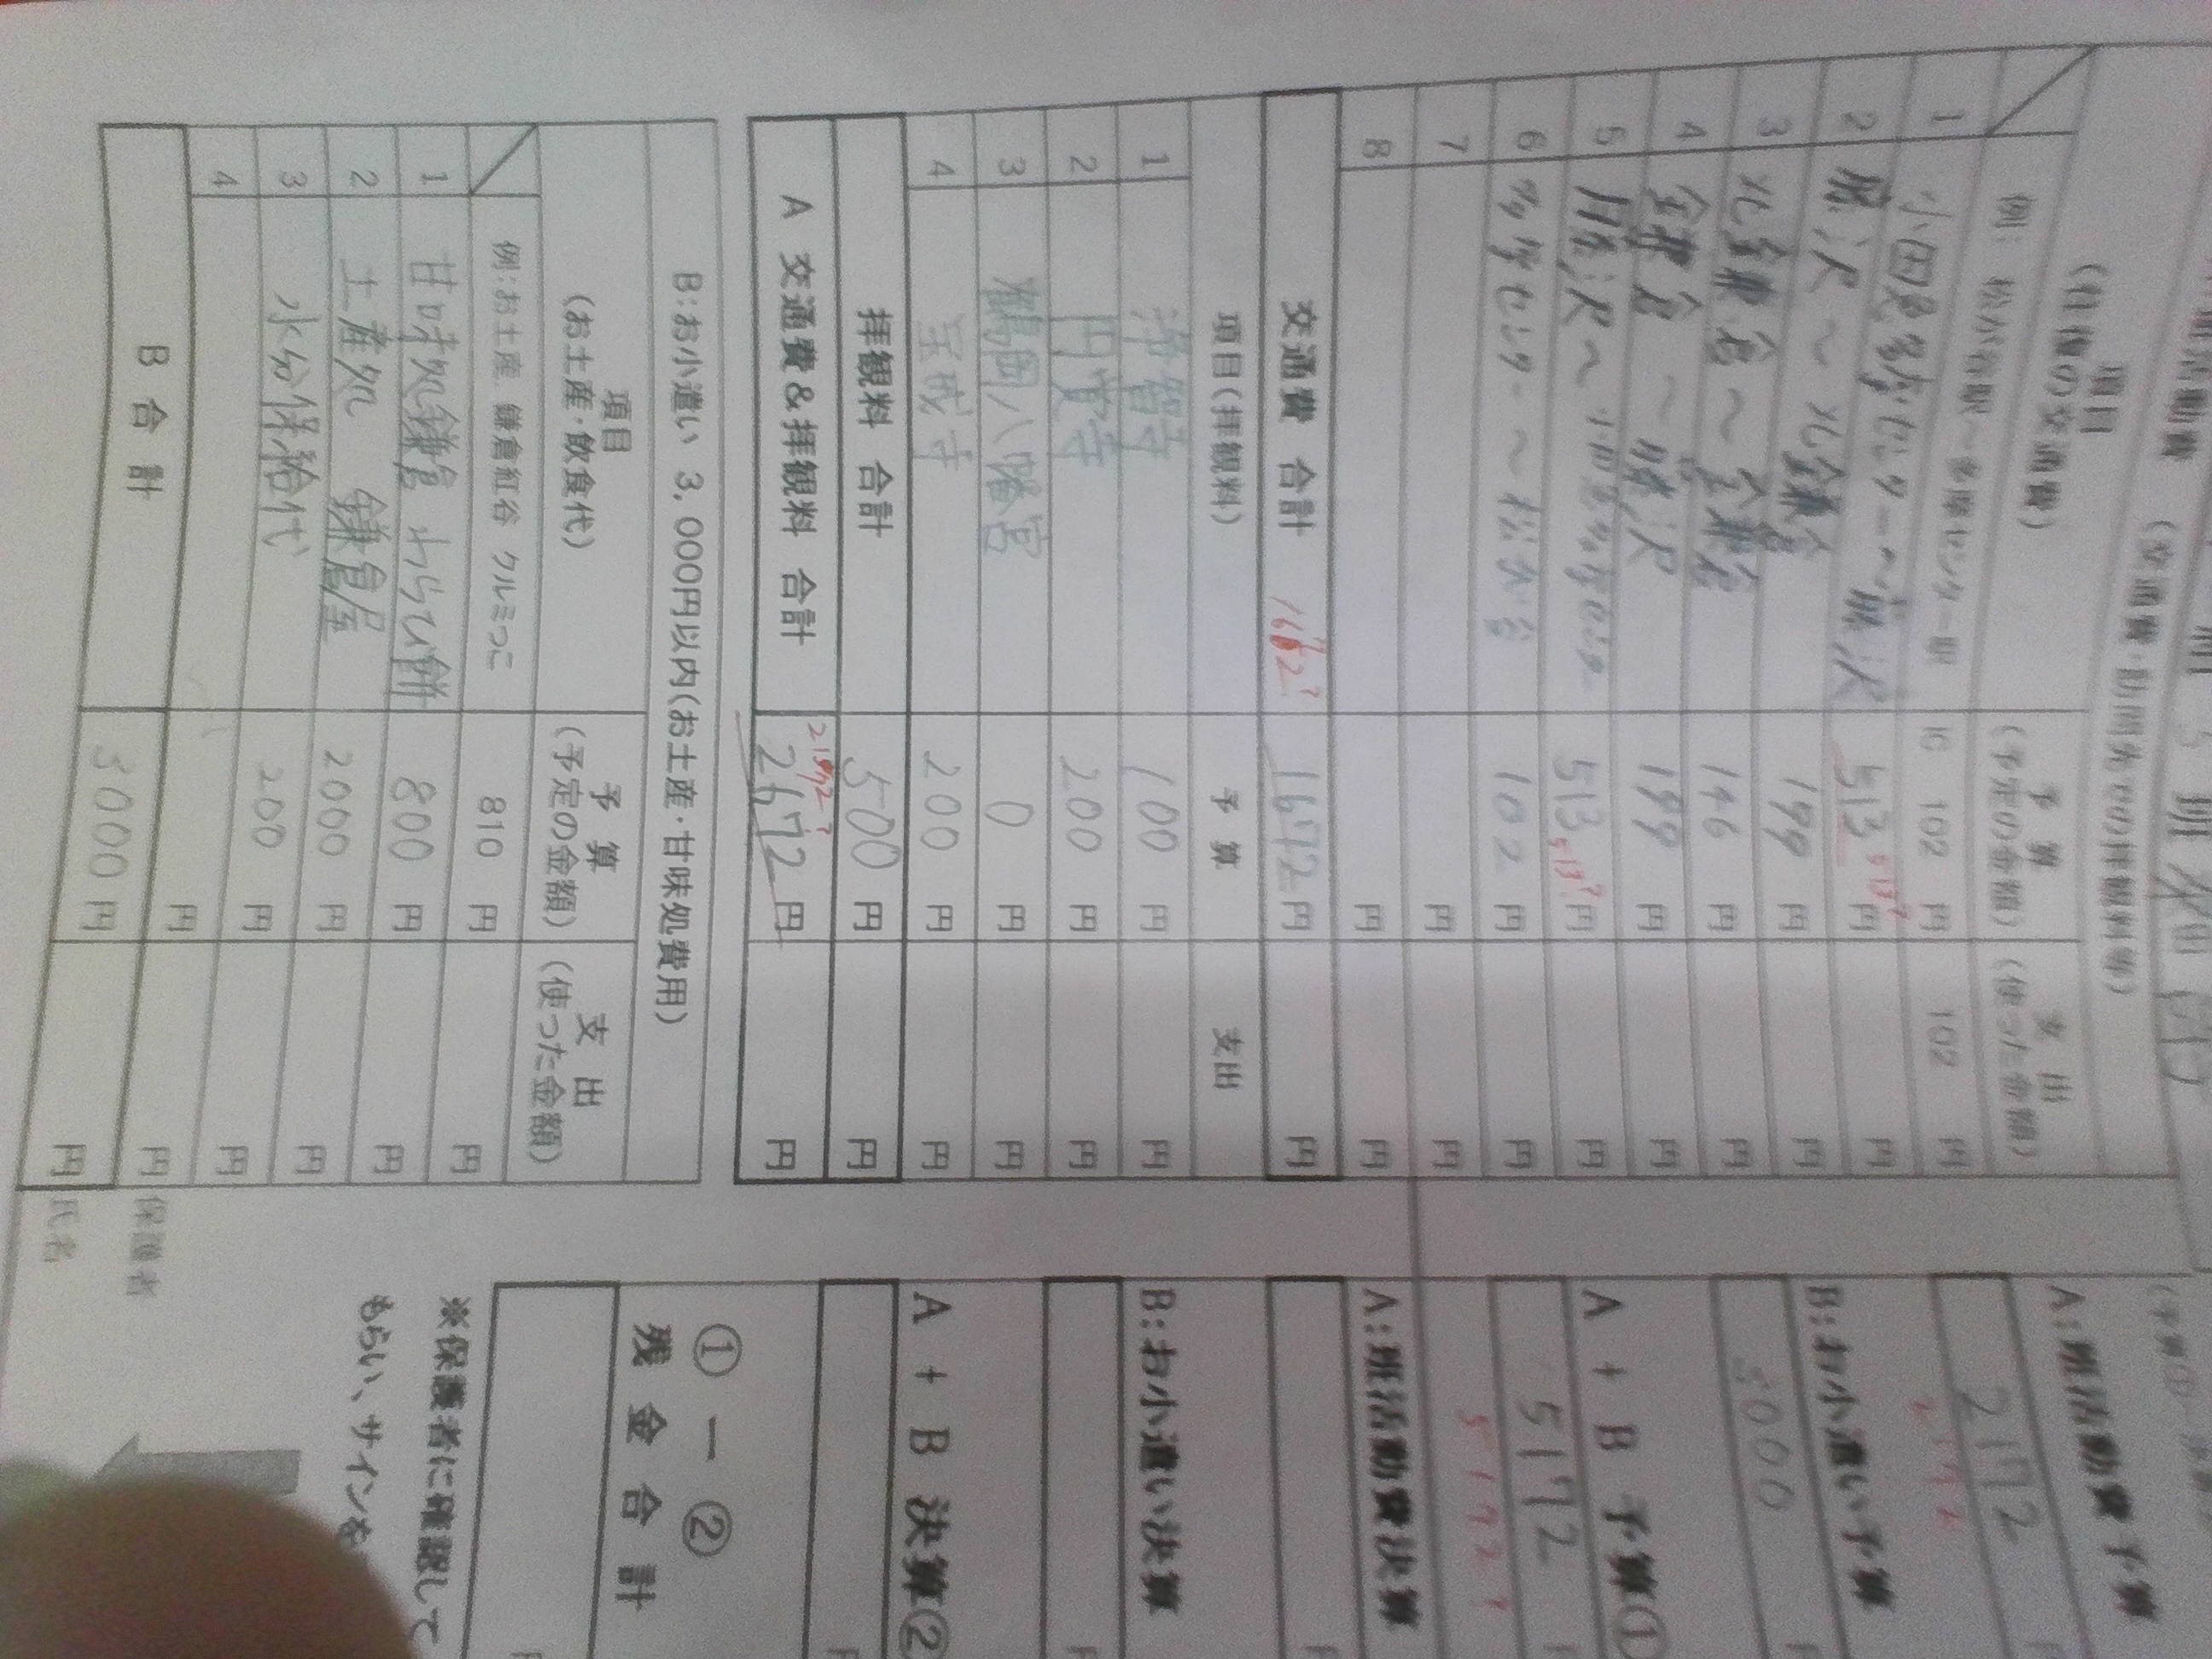 (交通費・訪問先での拝観料等)
項目
(往復の交通費)
予 算
(予定の金額)
支 出
(使った金額)
例: 松が谷駅~多摩センター駅 IC 102 円 102 円
1 小田急多摩センター~藤沢 513 円 円
513?
2 藤沢~北鎌倉 199 円 円
3 北鎌倉~鎌倉 146 円 円
4 鎌倉~藤沢 199 円 円
5 藤沢~小田急多摩センター 513 円 円
513?
6 多摩センター~松が谷 102 円 円
7 円 円
8 円 円
交通費 合計 1672 円 円
項目(拝観料) 予 算 支出
1 浄智寺 100 円 円
2 円覚寺 200 円 円
3 鶴岡八幡宮 0 円 円
4 200 円 円
拝観料 合計 500 円 円
A 交通費&拝観料 合計 2672 円 円
B:お小遣い 3,000円以内(お土産・甘味処費用)
項目
(お土産・飲食代)
予 算
(予定の金額)
支 出
(使った金額)
例:お土産 鎌倉紅谷 クルミっこ 810 円 円
1 甘味処鎌倉 わらび餅 800 円 円
2 土産処 鎌倉屋 2000 円 円
3 水分補給代 200 円 円
4 円 円
B 合 計 3000 円 円
A:班活動費予算
2172
2172
B:お小遣い予算
3000
A + B 予算①
5172
5172?
A:班活動費決算
B:お小遣い決算
A + B 決算②
① ー ②
残 金 合 計
※保護者に確認して
もらい、サインを
保護者
氏名